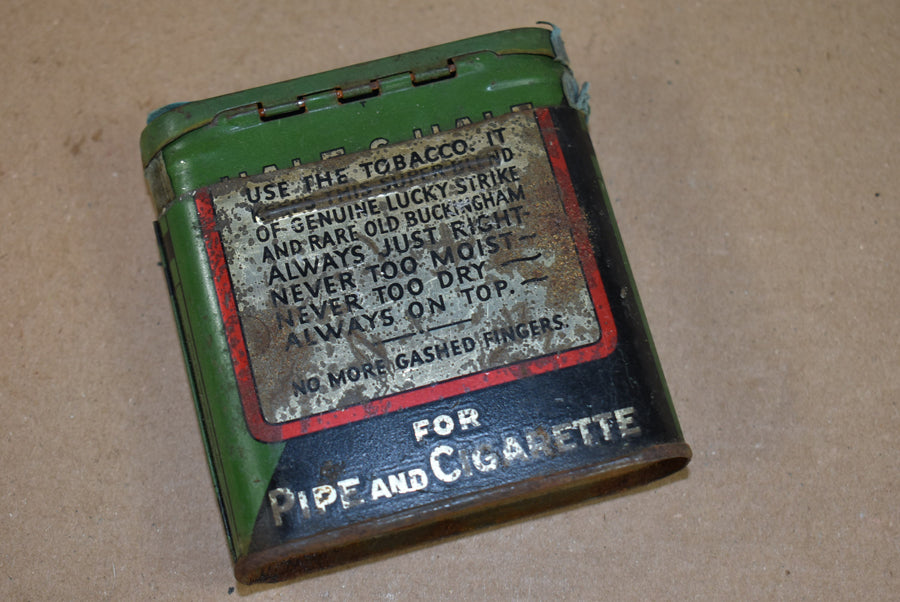 HALF & HALF
USE THE TOBACCO. IT
THIS SUPER BLEND
OF GENUINE LUCKY STRIKE
AND RARE OLD BUCKINGHAM
ALWAYS JUST RIGHT—
NEVER TOO MOIST—
NEVER TOO DRY —
ALWAYS ON TOP.—
NO MORE GASHED FINGERS.
FOR
PIPE AND CIGARETTE